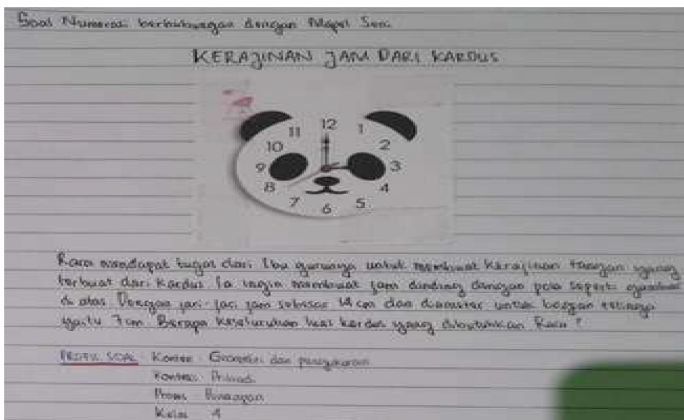 Soal Numerasi berhubungan dengan Mapel Seni
KERAJINAN JAM DARI KARDUS
12
11 1
10 2
9 3
8 4
7 5
6
Rara mendapat tugas dari Ibu gurunya untuk membuat kerajinan tangan yang
terbuat dari kardus. Ia ingin membuat jam dinding dengan pola seperti gambar
di atas. Dengan jari-jari jam sebesar 14 cm dan diameter untuk bagian telinga
yaitu 7 cm. Berapa keseluruhan luas kardus yang dibutuhkan Rara?
PROFIL SOAL Konten : Geometri dan pengukuran
Konteks : Pribadi
Proses : Penerapan
Kelas : 4